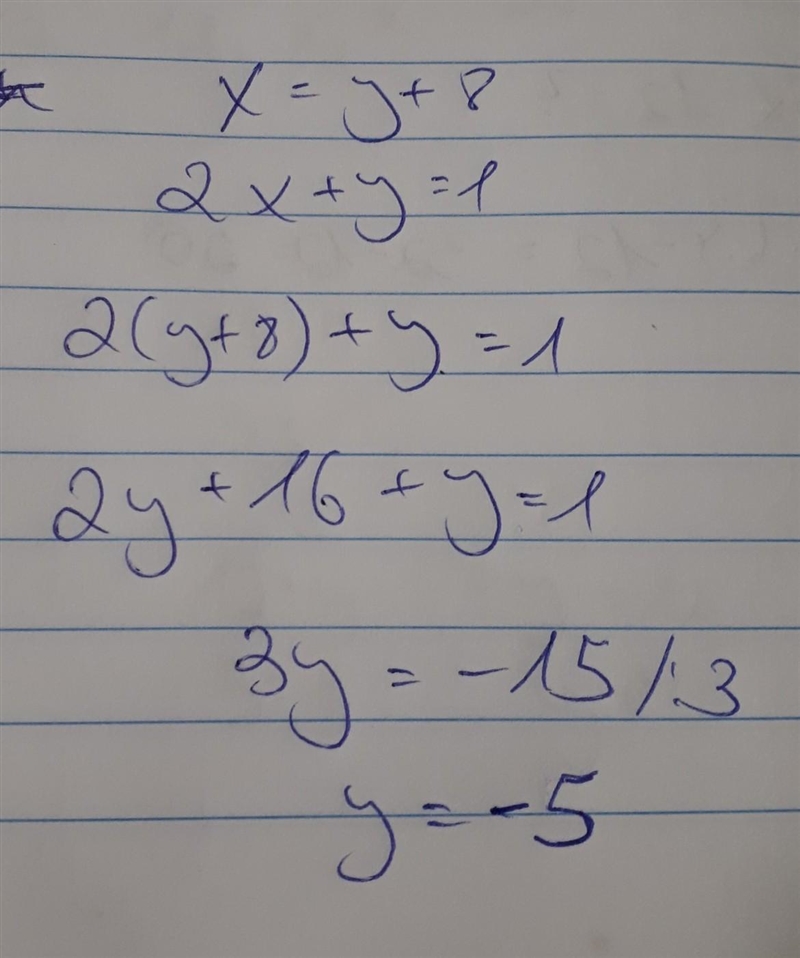 x = y + 8
2x + y = 1
2(y+8) + y = 1
2y + 16 + y = 1
3y = -15 /:3
y = -5